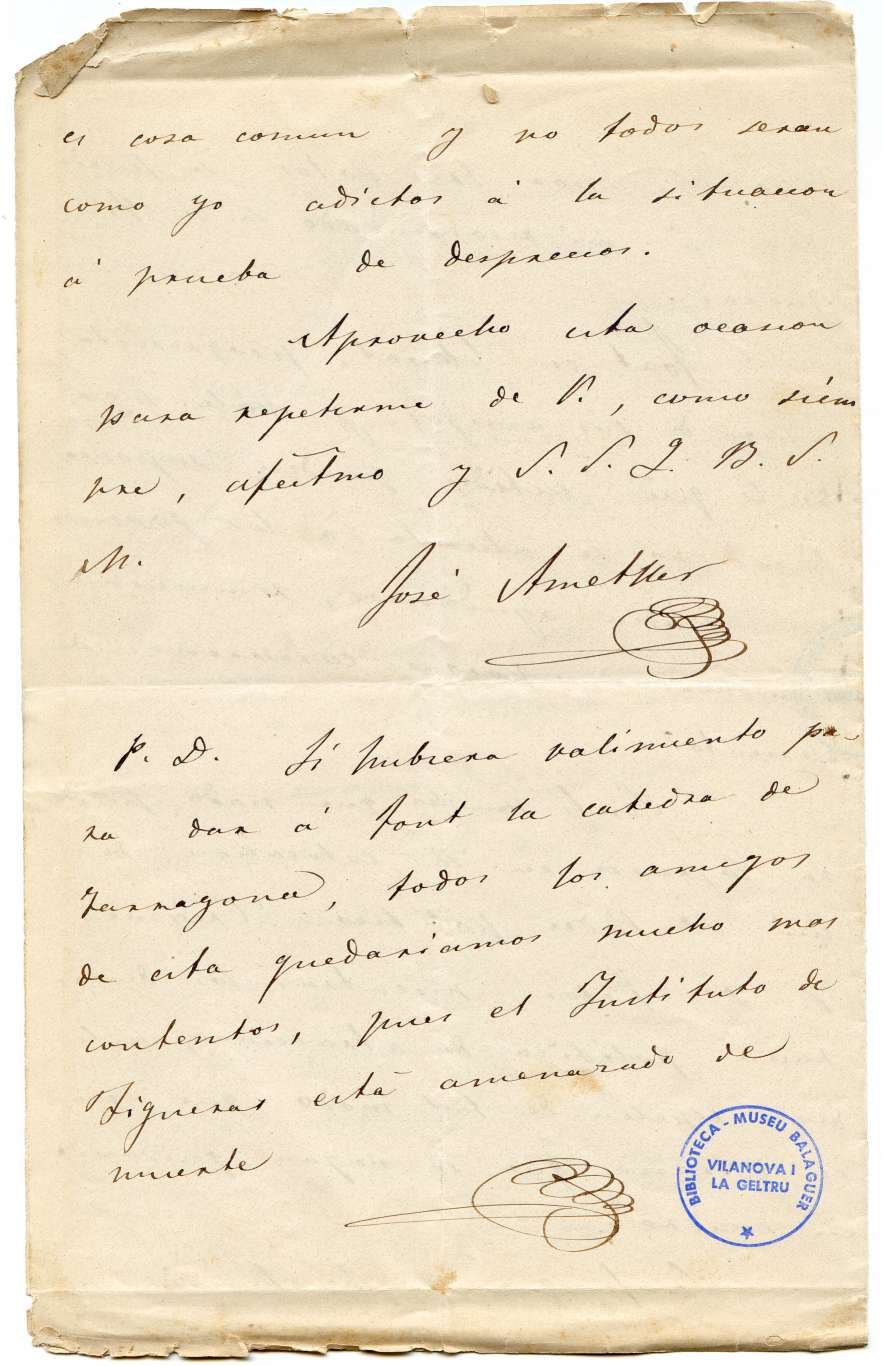 es cosa comun y no todos seran
como yo adictos á la situacion
á prueba de desprecios.
Aprovecho esta ocasion
para repetirme de V., como siem
pre, afectmo y S. S. Q. B. S.
M.
José Ametller
P. D. Si hubiera valimiento pa-
ra dar á Font la catedra de
Tarragona, todos los amigos
de esta quedariamos mucho mas
contentos, pues el Instituto de
Figueras está amenazado de
muerte
BIBLIOTECA - MUSEU BALAGUER
VILANOVA I
LA GELTRU